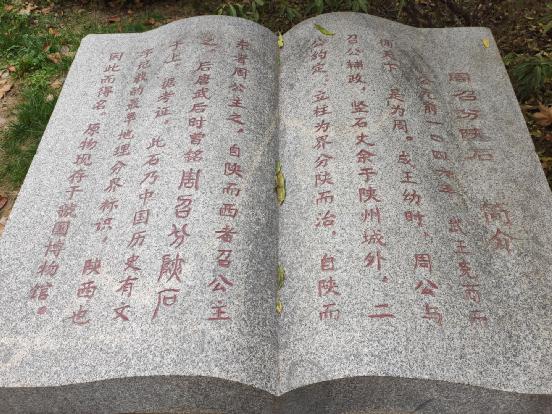 周召分陕石 简介
公元前一〇四六年 武王克商而
天下,是为周。成王幼时,周公与
召公辅政,竖石丈余于陕州城外,二
公约定,立柱为界分陕而治。自陕而
东者周公主之,自陕而西者召公主
之。后唐武后时曾铭周召分陕石
于上。据考证,此石乃中国历史有文
字记载的最早地理分界标识,陕西也
因此而得名。原物现存于虢国博物馆。